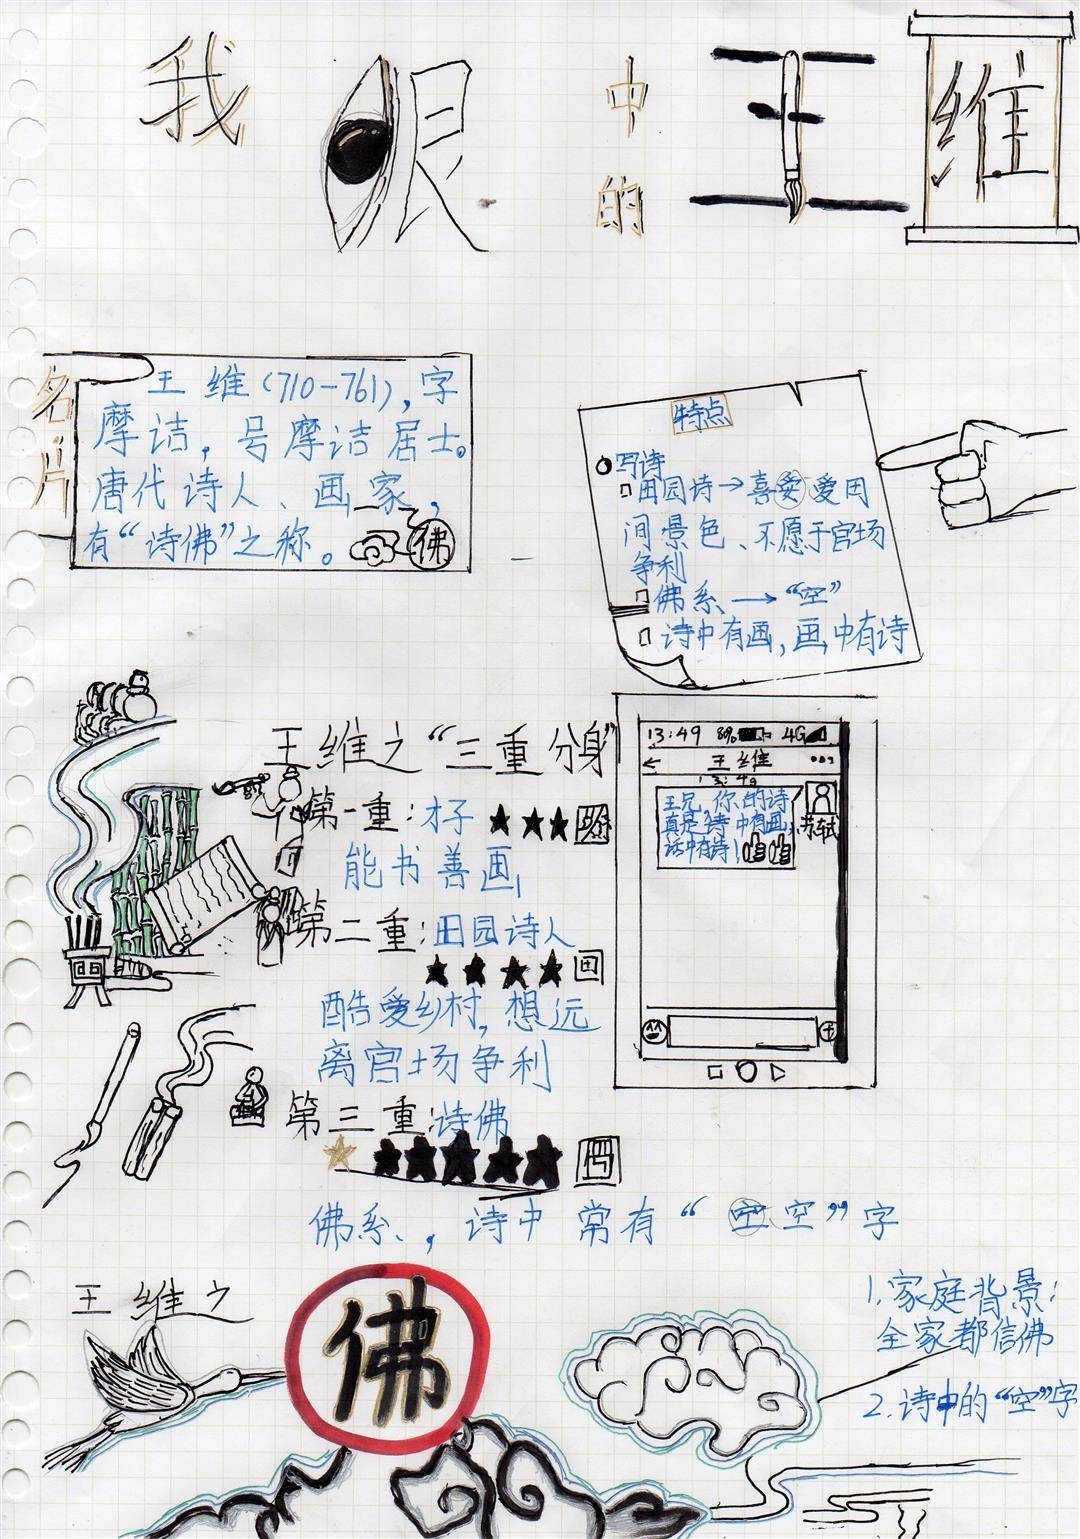 我眼中的王维
名片
王维(710-761),字
摩诘,号摩诘居士。
唐代诗人、画家,
有“诗佛”之称。
佛
特点
写诗
田园诗→喜爱田
间景色、不愿于官场
争利
佛系→“空”
诗中有画,画中有诗
王维之“三重分身”
第一重:才子
能书善画
第二重:田园诗人
酷爱乡村,想远
离官场争利
第三重:诗佛
佛系,诗中常有“空”字
13:49 80% 4G
王维
13:49
王兄,你的诗
真是诗中有画,
话中有诗!
苏轼
王维之
佛
1.家庭背景:
全家都信佛
2.诗中的“空”字